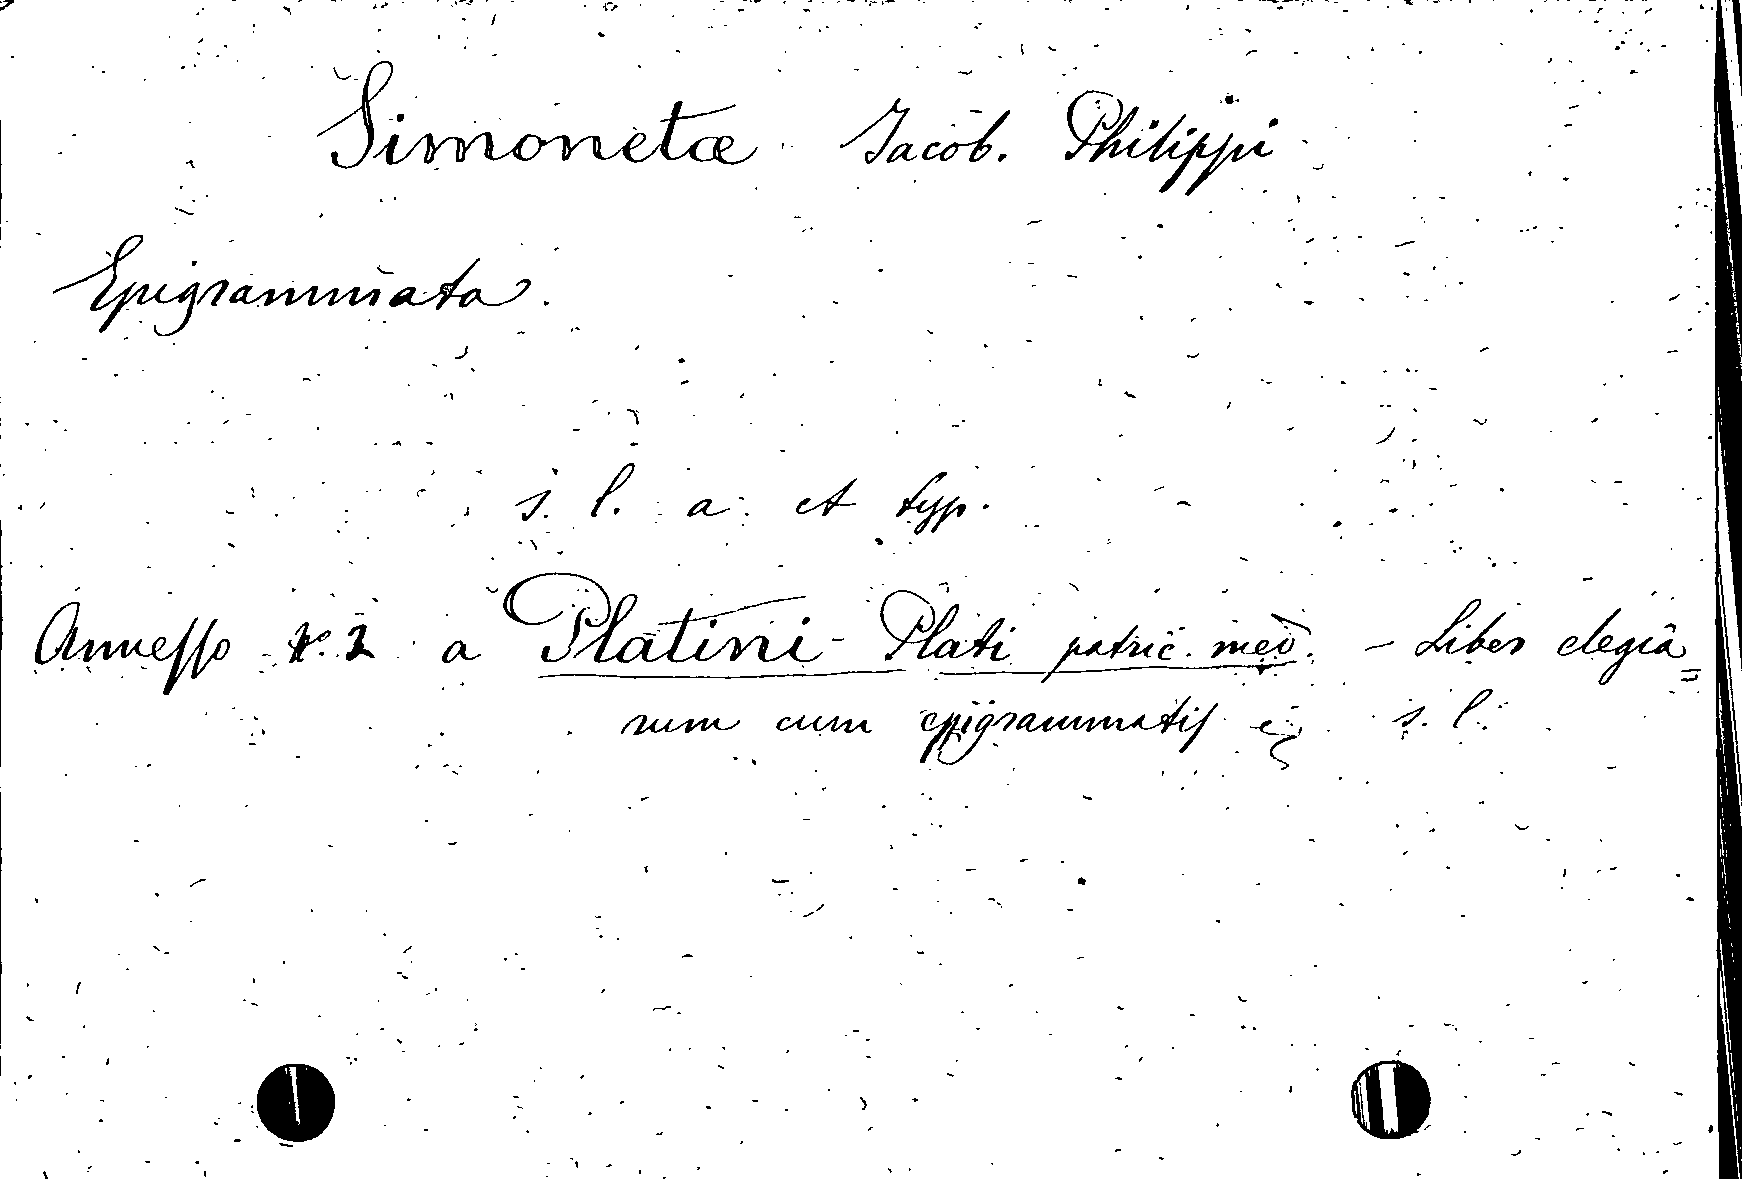 Simonetæ Jacob. Philippi
Epigrammata.
s. l. a. et typ.
Annesso No. 2 a Platini-Plati patric. med. - Liber elegia=
rum cum epigrammatis s. l.